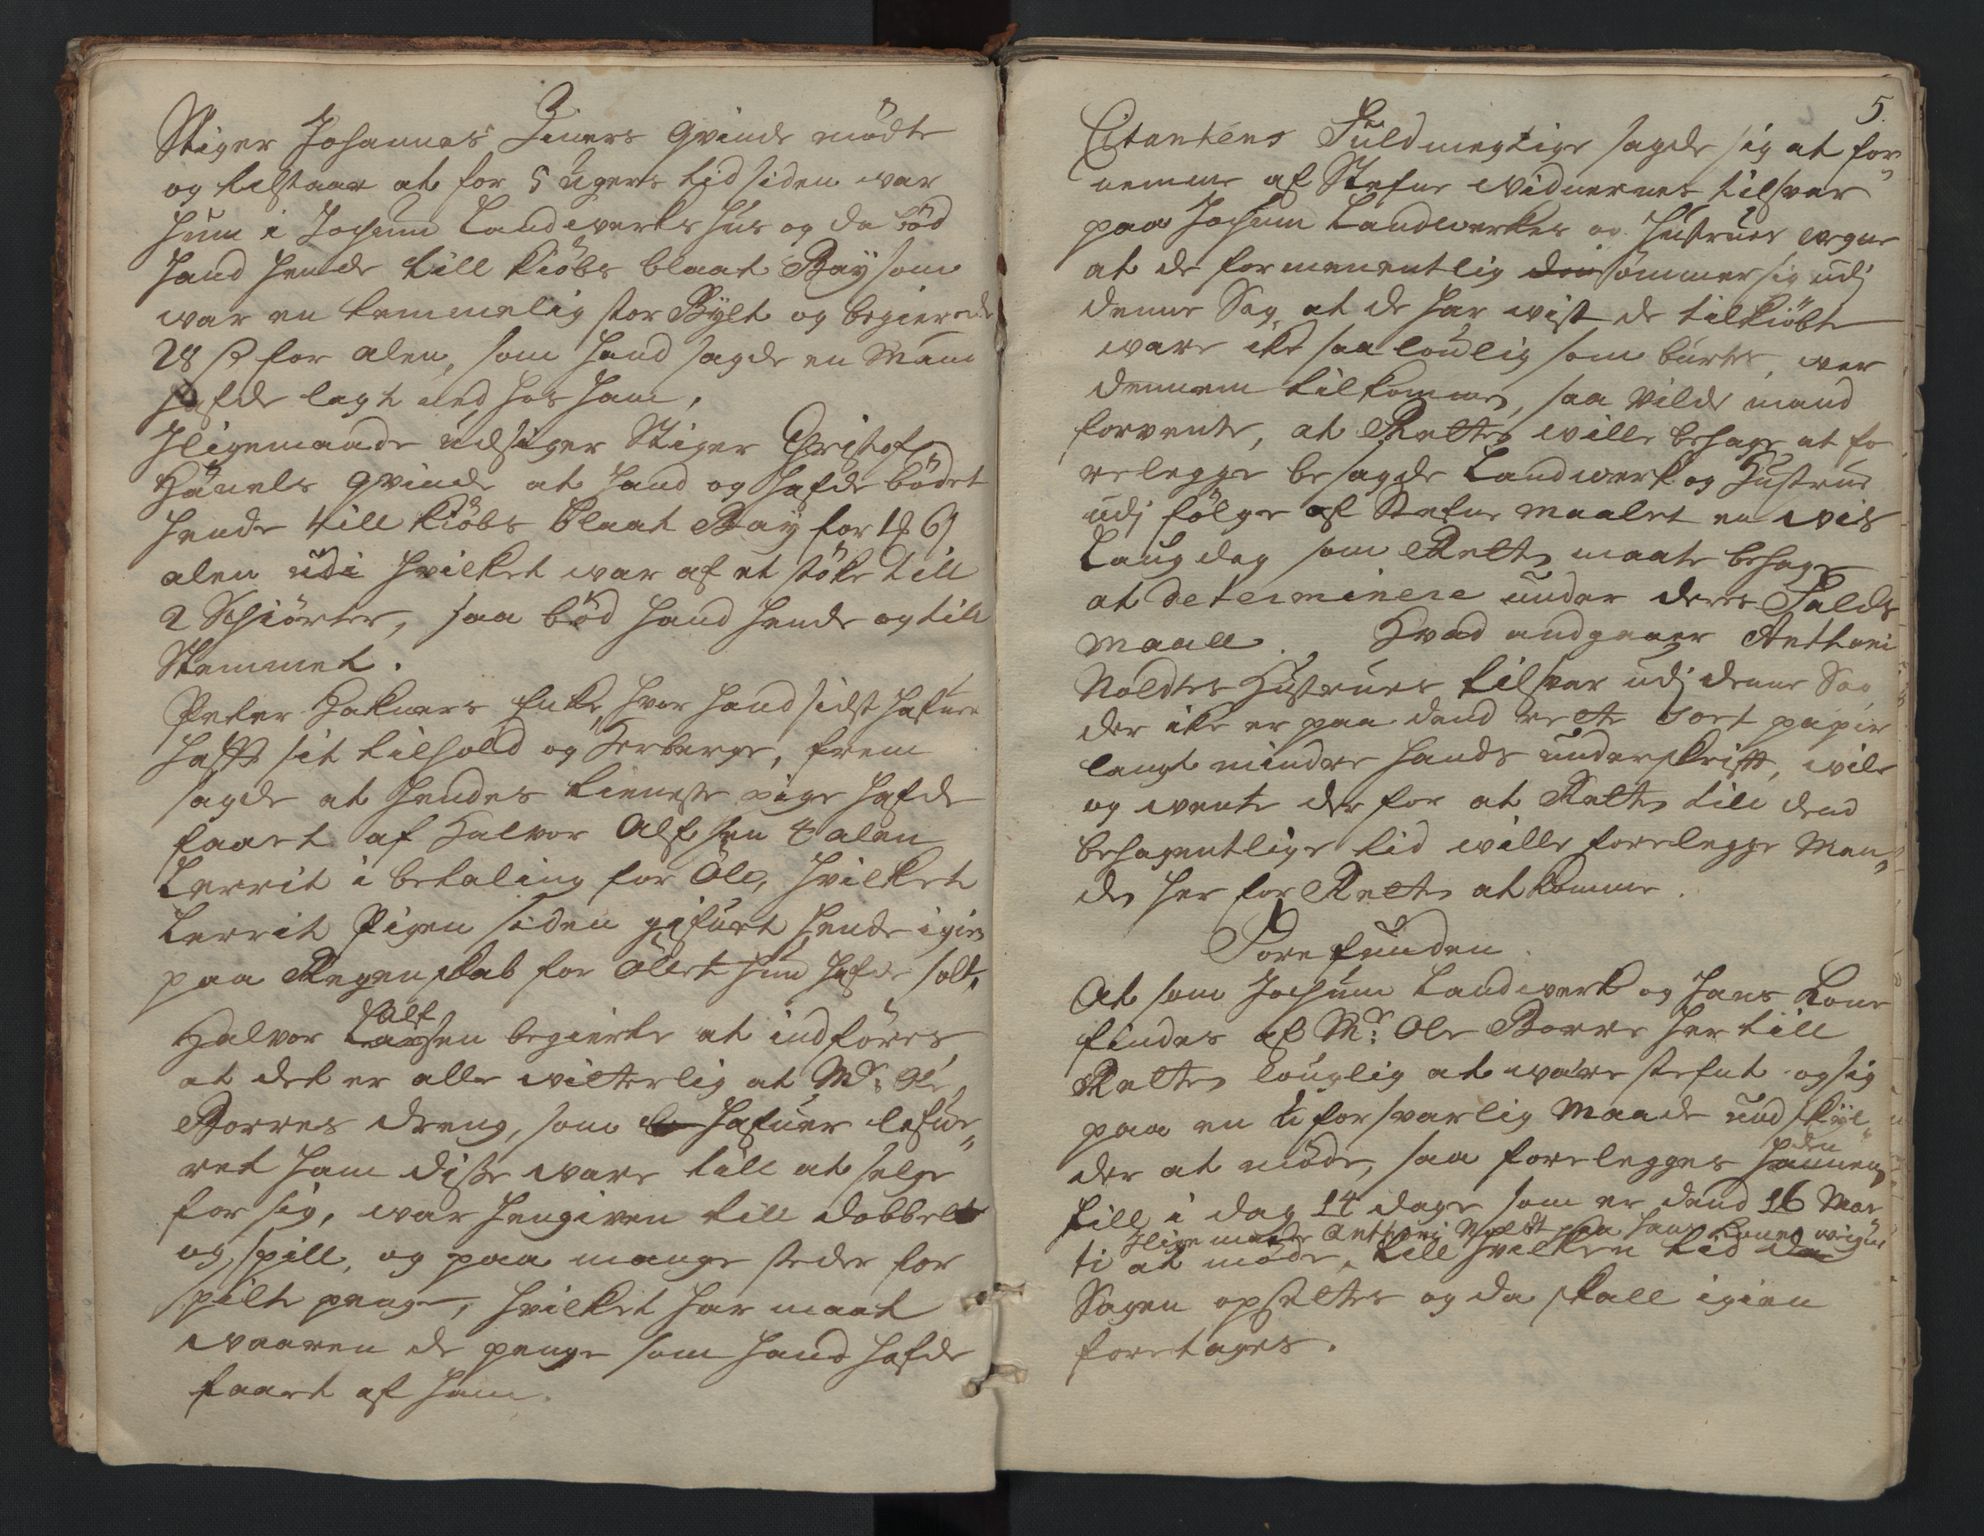 Stiger Johannes Finers Qvinde mødte
og tilstaar at for 5 Ugers tid siden war
hun i Jochum Landwerks hus og da bød
hand hende till kiøbs blaat Bay som
war en temmelig stor Bylt og begierede
28 ß for alen, som hand sagde en Mand
hafde lagt ned hos ham,
Iligemaade udsiger Stiger Christof
Hänels Qvinde at hand og hafde bødet
hende till kiøbs blaat Bay for
alen udi hvilket war af et støke till
2 Schiörter, saa bød hand hende og till
Skammet.
Peter Hakners Enke, hvor hand sidst hafuer
hafft sit tilhold og Herberge, frem
sagde at hendes tieneste pige hafde
faaet af Halvor Alfsen 4 alen
Lerrit i betaling for Öll, hvilket
Lerrit Pigen siden gifuet hende igien
paa Regenskab for Öllet hun hafde solt,
Halvor Alfsen begierte at indføres
at det er alle witterlig at Mr: Ole
Borres dreng, som hafuer lefue„
ret ham disse ware till at selge
for sig, war hengiven till dobbelt
og spill, og paa mange steder for
spilte penge, hvilket har maat
waaren de penge som hand hafde
faaet af ham.
5.
Citantens Fuldmegtige sagde sig at for„
nemme af Stefne widnernes tilsvar
paa Jochum Landwerkes og Hustrues wegne
at de formenentlig sømmer sig udj
denne Sag, at de har wist de tilkiöbte
ware ike saa loulig som burte, wer
dennem tilkomme, saa vilde mand
forvente, at Retten wille behage at fo
relegge besagde Landwerk og Hustrue
udj følge af Stefne maalet en wis
Laugdag som Retten maate behage
at determinere under deres Falds
Maall. Hvad andgaaer Anthoni
Noldtes Hustrues tilsvar udj denne Sag
der ike er paa dend rette sort papir
langt mindre hands underskrifft, wile
og wente der for at Retten till dend
behagentlige tid wille forelegge Man„
den her for Retten at komme.
Forefunden.
At som Jochum Landwerk og hans Kone
findes af Mr: Ole Borre her till
Retten louglig at være stefnt og sig
paa en uforsvarlig Maade undskyl„
der at møde, saa forelegges hannem
till i dag 14 dage som er dend 16 Mar
Iligemaade Anthoni Noldt paa hans Kones wegne
ti at møde, till hvilken tid
Sagen opsettes og da skall igien
foretages.